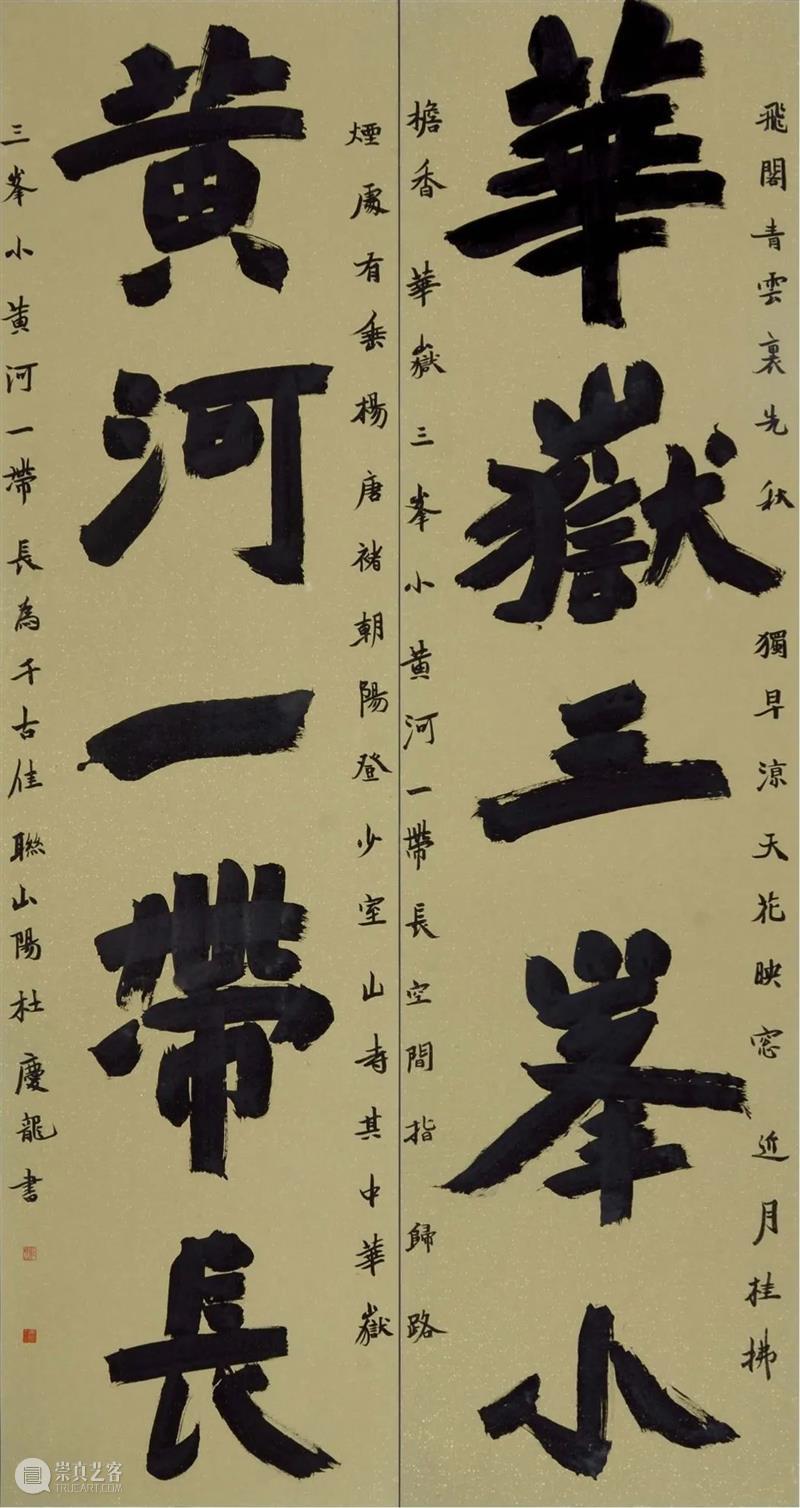 飛閣青雲裏先秋獨早涼天花映窓近月桂拂
華嶽三峯小
檐香華嶽三峯小黄河一帶長空間指歸路
煙處有垂楊唐褚朝陽登少室山寺其中華嶽
黄河一帶長
三峯小黄河一帶長為千古佳聯山陽杜慶龍書
崇真艺客
TRUEART.COM